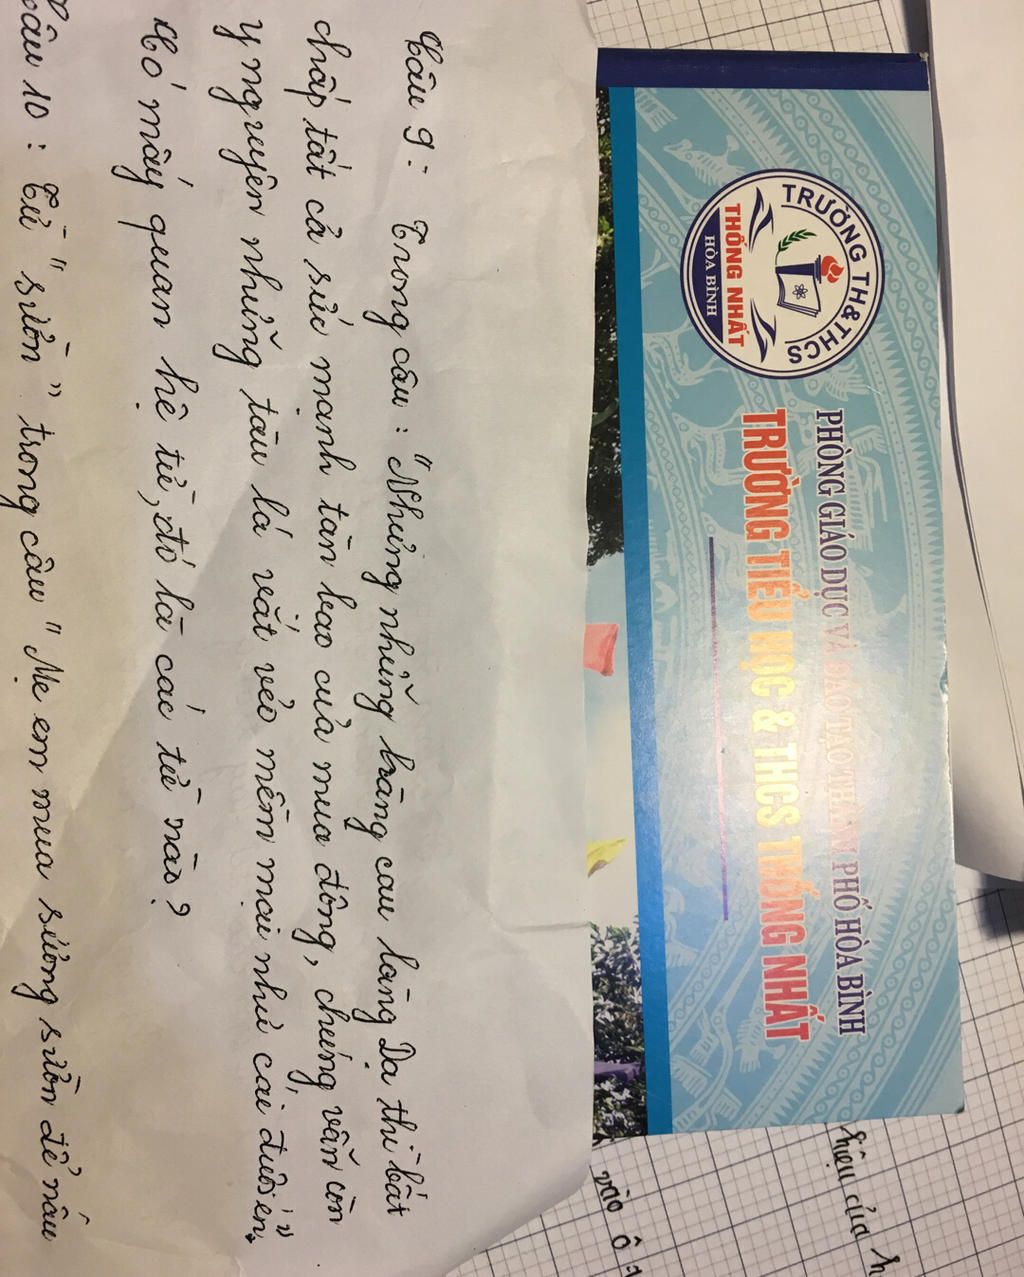 PHÒNG GIÁO DỤC VÀ ĐÀO TẠO THÀNH PHỐ HÒA BÌNH
TRƯỜNG TIỂU HỌC & THCS THỐNG NHẤT
TRƯỜNG TH&THCS
THỐNG NHẤT
HÒA BÌNH
hiệu của h
vào ô
Câu 9: Trong câu: "Nhưng những hàng cau làng Dạ thì bất
chấp tất cả sức mạnh tàn bạo của mưa đông, chúng vẫn còn
y nguyên những tàu lá vắt vẻo mềm mại như cái đuôi én."
Có mấy quan hệ từ, đó là các từ nào?
Câu 10: Từ "sườn" trong câu "Mẹ em mua sương sườn để nấu